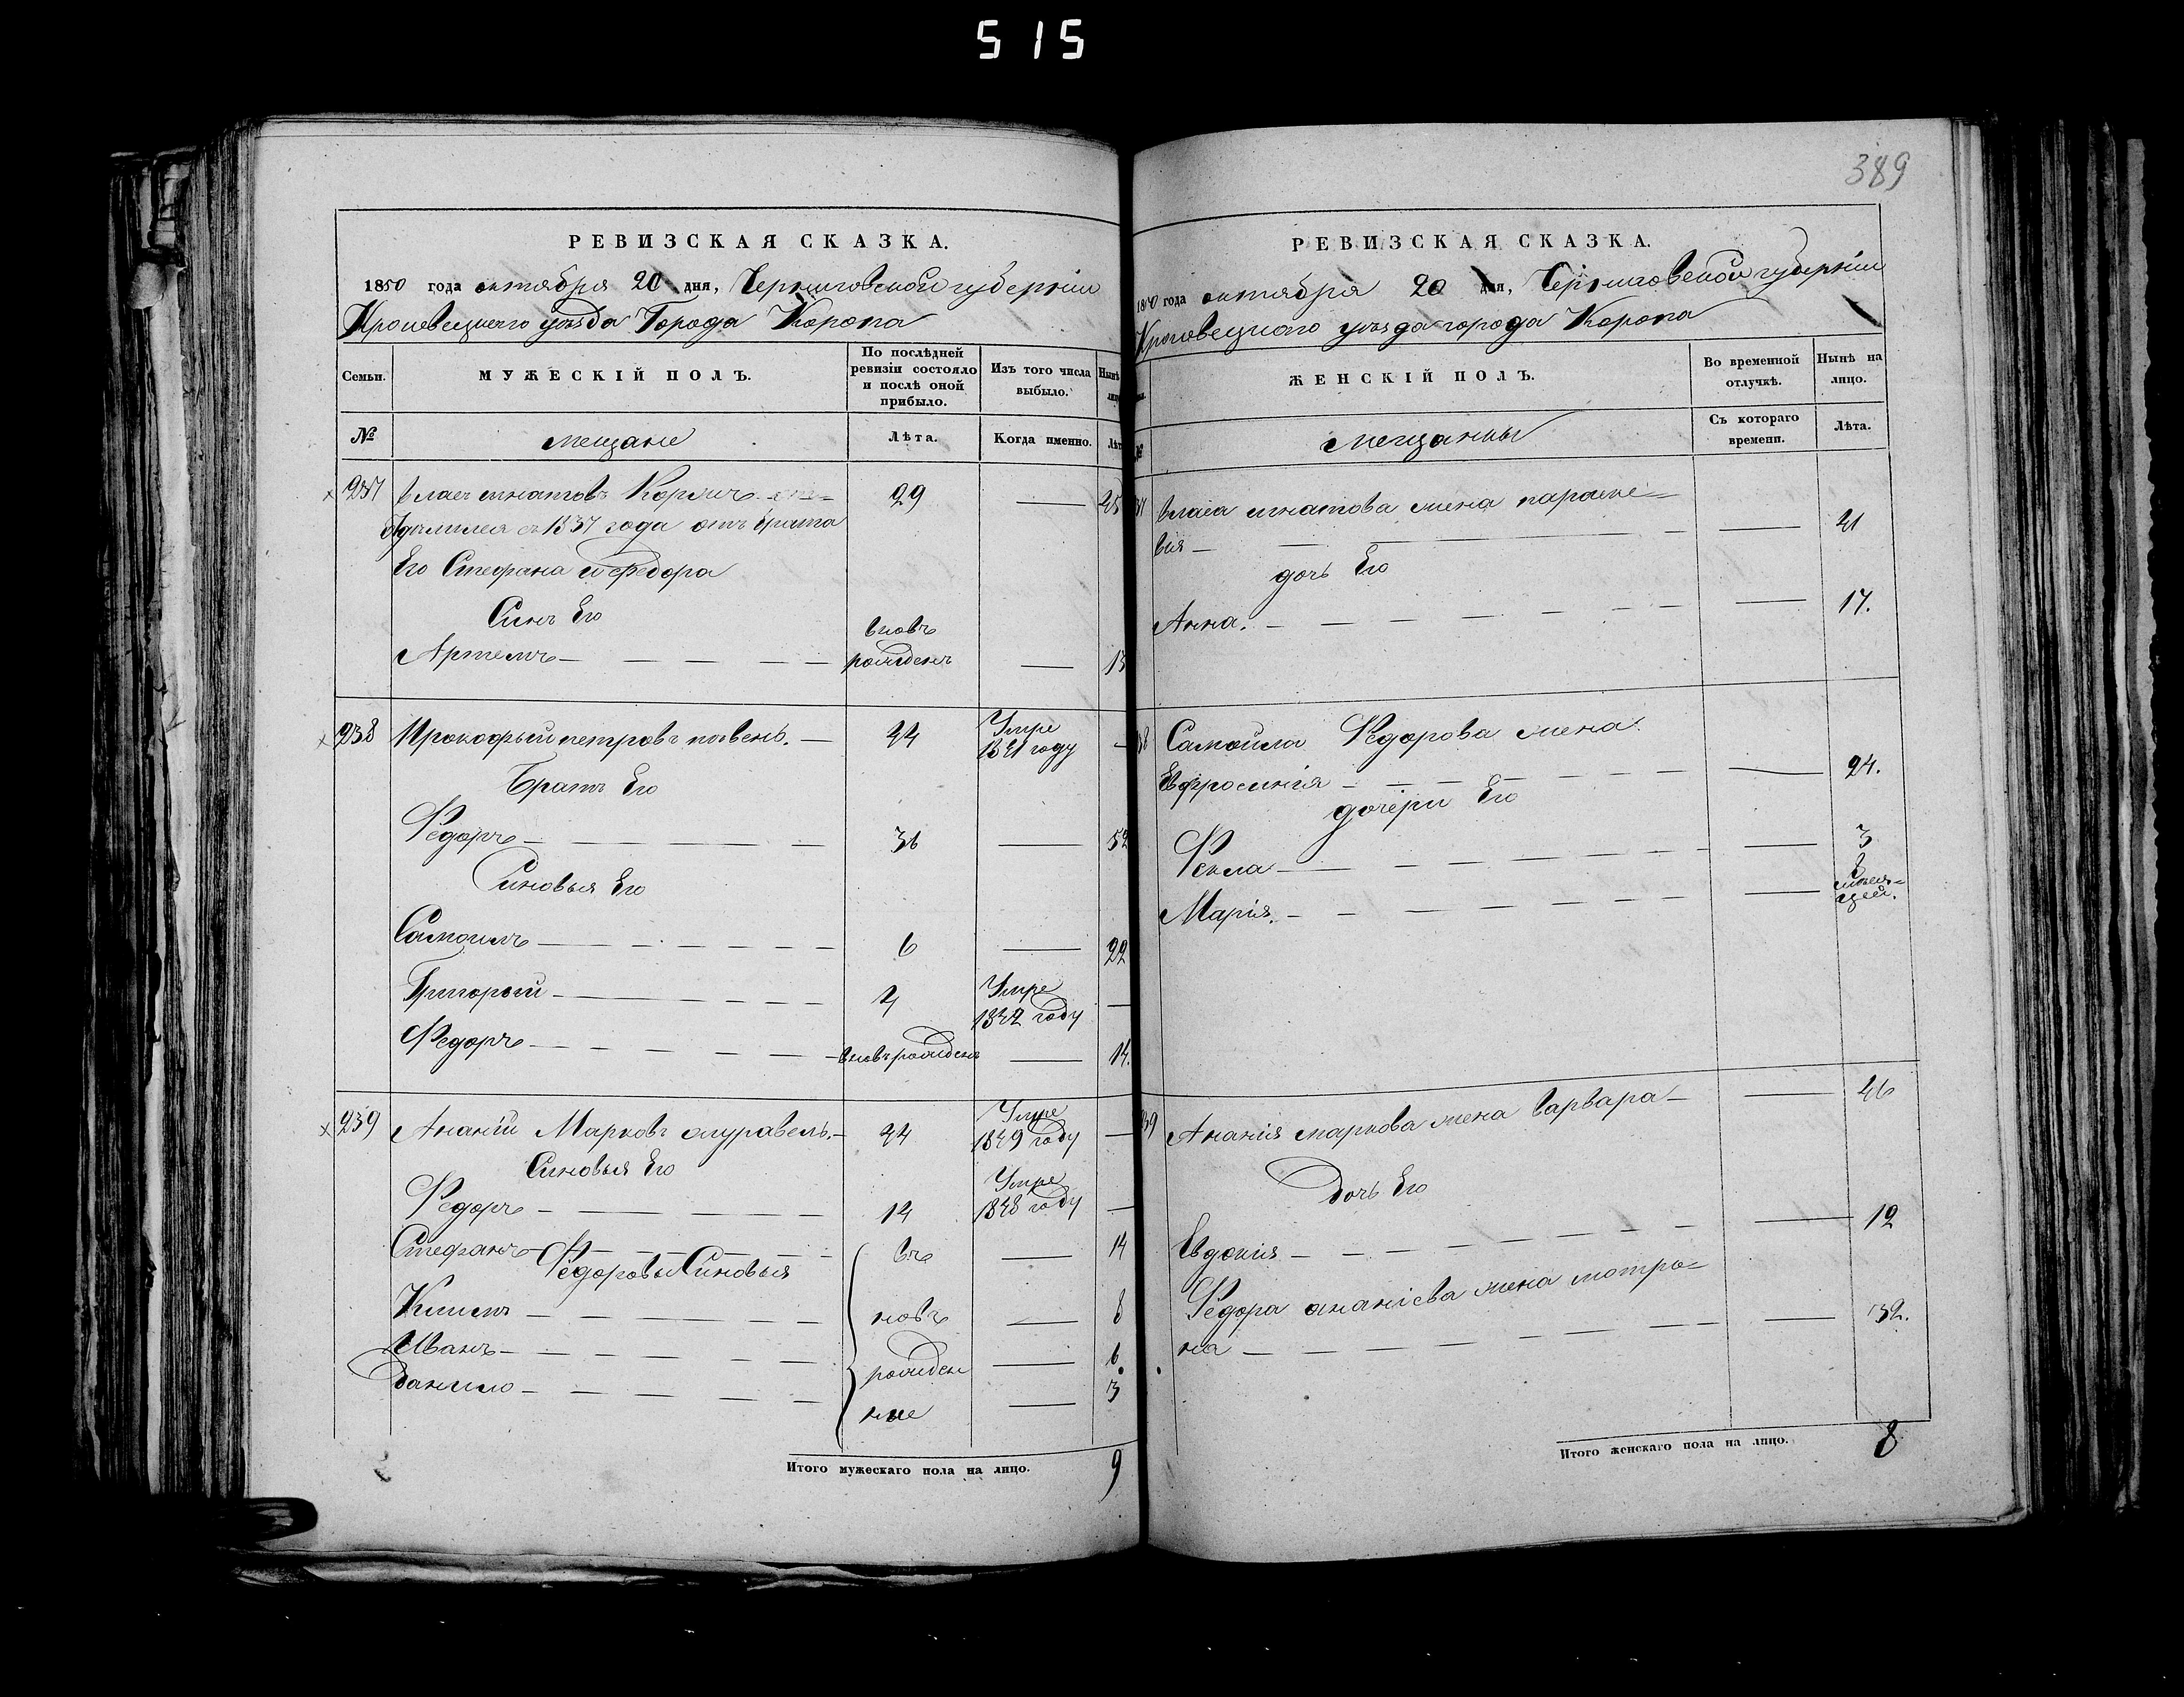 515
389
РЕВИЗСКАЯ СКАЗКА.
1850 года октября 20 дня, Черниговской губерніи
Кролевецкаго уѣзда Города Коропа
Семьи. МУЖЕСКІЙ ПОЛЪ. По послѣдней ревизіи состояло и послѣ оной прибыло. Изъ того числа выбыло. Нынѣ
№ мещане Лѣта. Когда именно. Лѣт
237 Власъ игнатовъ 29 — 45
отдѣлился съ 1837 года отъ брата
Его Стефана и федора
Синъ Его
Артемъ — вновь рожденъ — 13
238 Прокофьій петровъ пивень. — 44 Умре 1841 году —
Братъ Его
Федоръ — 36 — 52
Синовья Его
Самоилъ — 6 — 22
Григорій — 4 Умре 1842 году —
Федоръ — вновь рожденъ — 14.
239 Ананій Марковъ журавель. — 44 Умре 1849 году —
Синовья Его
Федоръ — 14 Умре 1848 году —
Стефанъ — въ — 14
Федоровы Синовья
Климъ — новъ — 8
Иванъ — рожден — 6
Данило — ные — 3
Итого мужескаго пола на лицо. 9
РЕВИЗСКАЯ СКАЗКА.
1850 года октября 20 дня, Черниговской губерніи
Кролевецкаго уѣзда города Коропа
ЖЕНСКІЙ ПОЛЪ. Во временной отлучкѣ. Нынѣ на лицо.
№ мещанки Съ котораго времени. Лѣта.
37 Власа игнатова жена параске=
вия — — 41
дочь Его
Анна. — — 17.
38 Самойла Федорова жена
Евфросинія — — 24.
дочери Его
Фекла — — 3
Марія. — — 8 мѣся=цей.
39 Ананія маркова жена варвара — — 46
Дочь Его
Евдокія — — 12
Федора ананіева жена мотро=
на — — 32.
Итого женскаго пола на лицо. 8